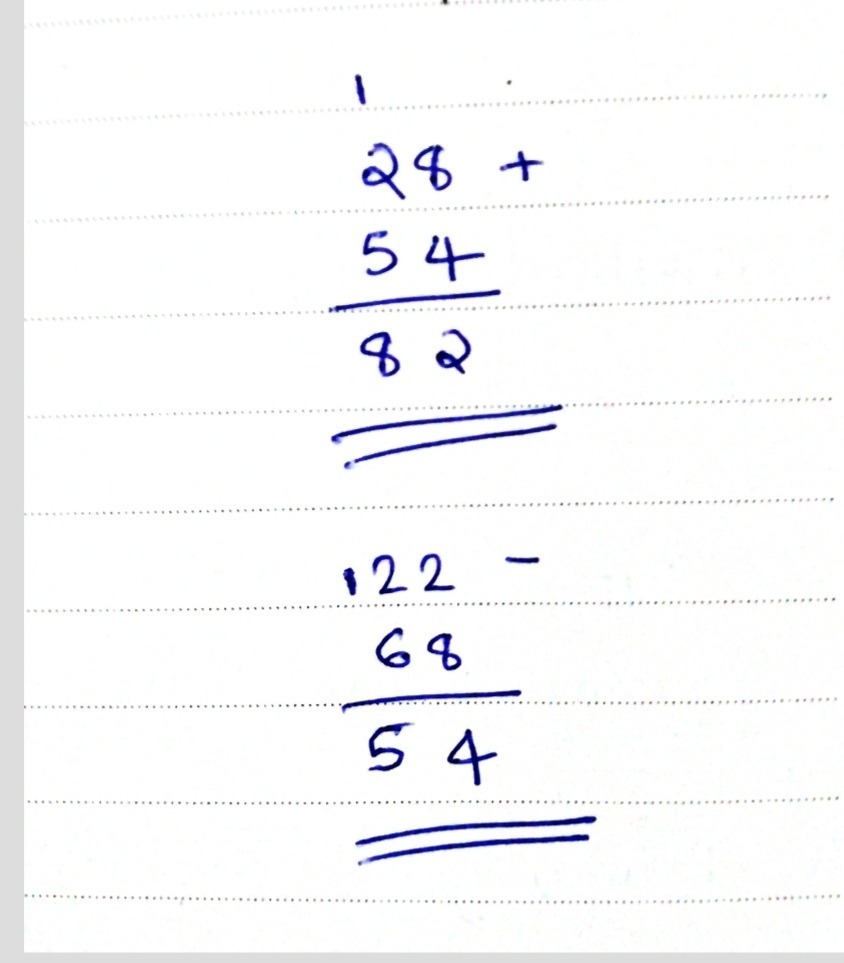 1
28 +
54
82
122 -
68
54